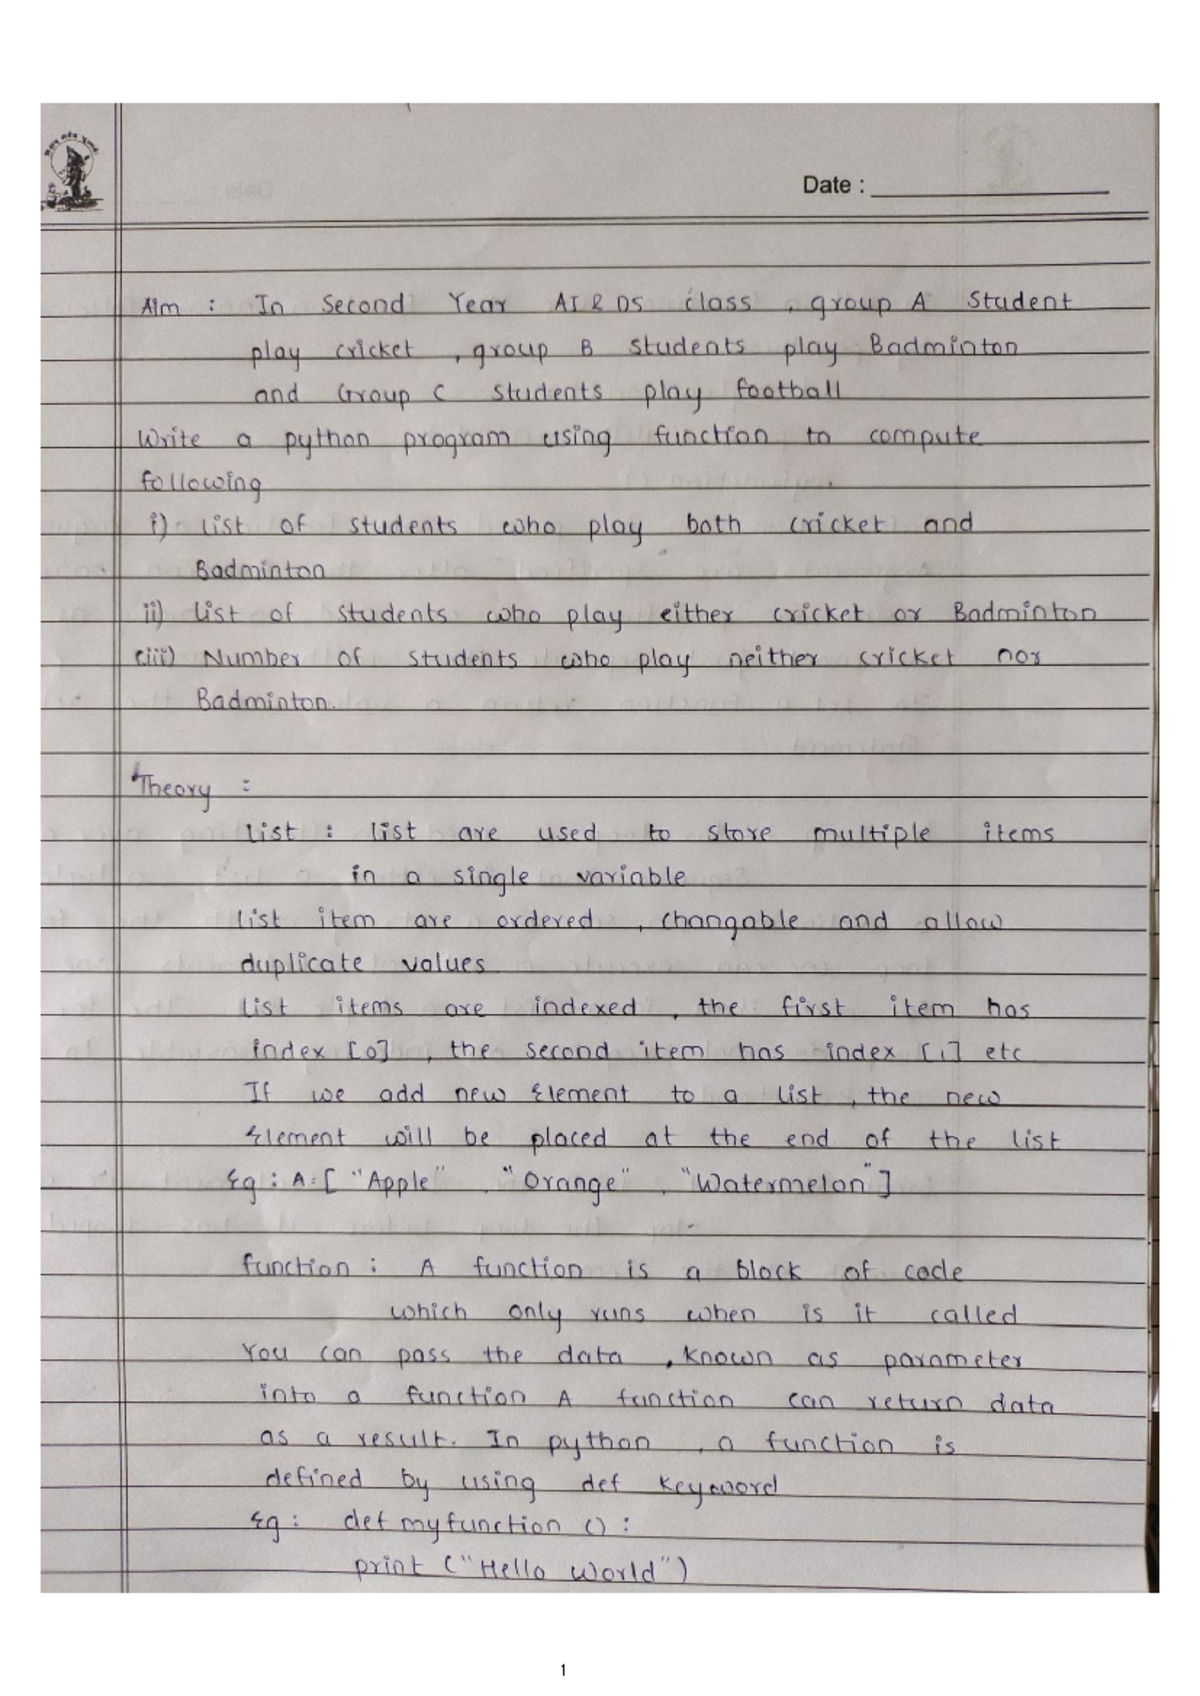 Date :
Aim : In Second Year AI & DS class , group A Student
play cricket , group B students play Badminton
and Group C students play football
Write a python program using function to compute
following
i) List of students who play both cricket and
Badminton
ii) List of students who play either cricket or Badminton
(iii) Number of students who play neither cricket nor
Badminton.
Theory :
List : list are used to store multiple items
in a single variable
List item are ordered , changable and allow
duplicate values.
List items are indexed , the first item has
index [0] , the second item has index [1] etc
If we add new Element to a list , the new
Element will be placed at the end of the list
Eg : A = [ "Apple" , "Orange" , "Watermelon" ]
function : A function is a block of code
which only runs when is it called
You can pass the data , known as parameter
into a function A function can return data
as a result. In python , a function is
defined by using def keyword
Eg : def myfunction () :
print ("Hello World")
1